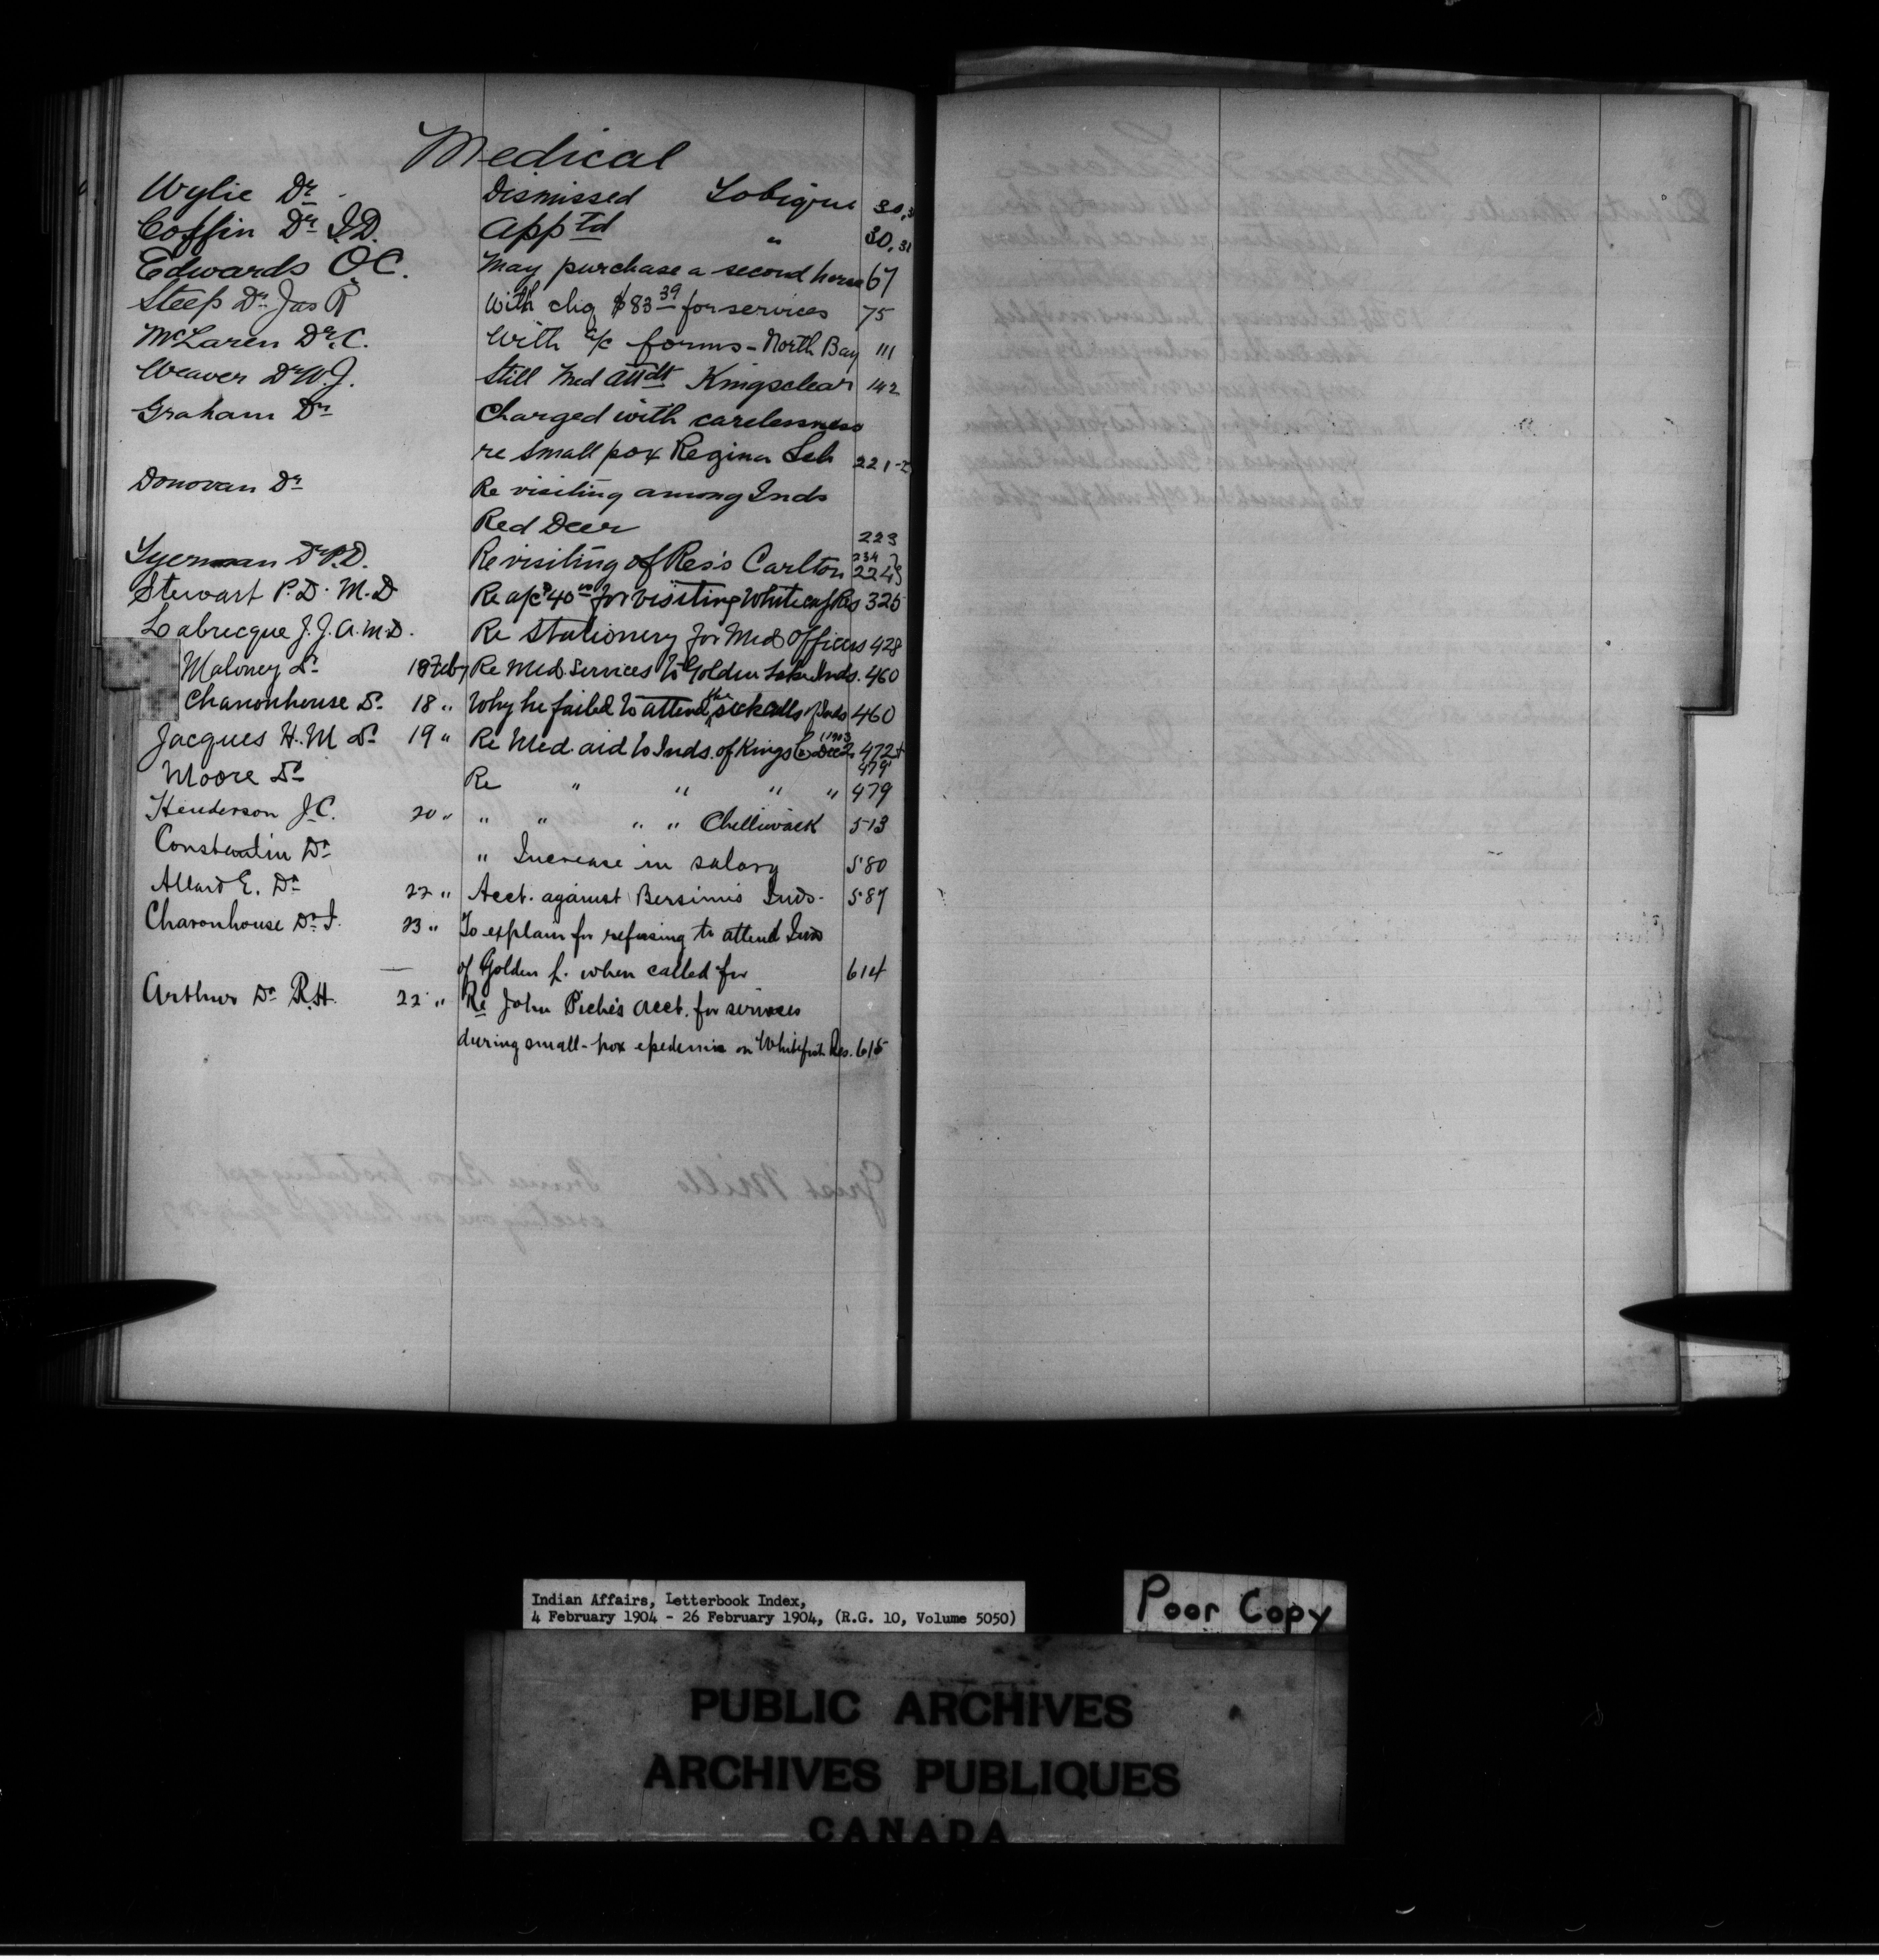 Medical
Wylie Dr Dismissed Tobique 30,
Coffin Dr I.D. Apptd " 30, 31
Edwards O.C. May purchase a second horse 67
Steep Dr Jas R With chq $83 39 for services 75
McLaren Dr C. With a/c forms - North Bay 111
Weaver Dr W.J. Still Med Attdt Kingsclear 142
Graham Dr Charged with carelessness
re small pox Regina Sch 221-2
Donovan Dr Re visiting among Inds
Red Deer 223
Dr P.D. Re visiting of Res's Carlton 234 224
Stewart P.D. M.D Re a/c $40 for visiting Whitecap Res 325
Labrecque J.J.A. M.D. Re Stationery for Med Officers 428
Maloney Dr 18 Feby Re Med. Services to Golden Lake Inds. 460
Channonhouse Dr 18 " Why he failed to attend the sick calls of Inds 460
Jacques H.M Dr 19 " Re Med. aid to Inds. of Kings Co Dec 1903 472 +
479
Moore Dr Re " " " " 479
Henderson J.C. 20 " " " " " Chilliwack 513
Constantin Dr " Increase in salary 580
Allard E. Dr 22 " Acct. against Bersimis Inds. 587
Chavonhouse Dr J. 23 " To explain for refusing to attend Inds
of Golden L. when called for 614
Arthur Dr R.H. 22 " Re John Piché's acct. for services
during small-pox epedemic on Whitefish Res. 615
Indian Affairs, Letterbook Index,
4 February 1904 - 26 February 1904, (R.G. 10, Volume 5050)
Poor Copy
PUBLIC ARCHIVES
ARCHIVES PUBLIQUES
CANADA